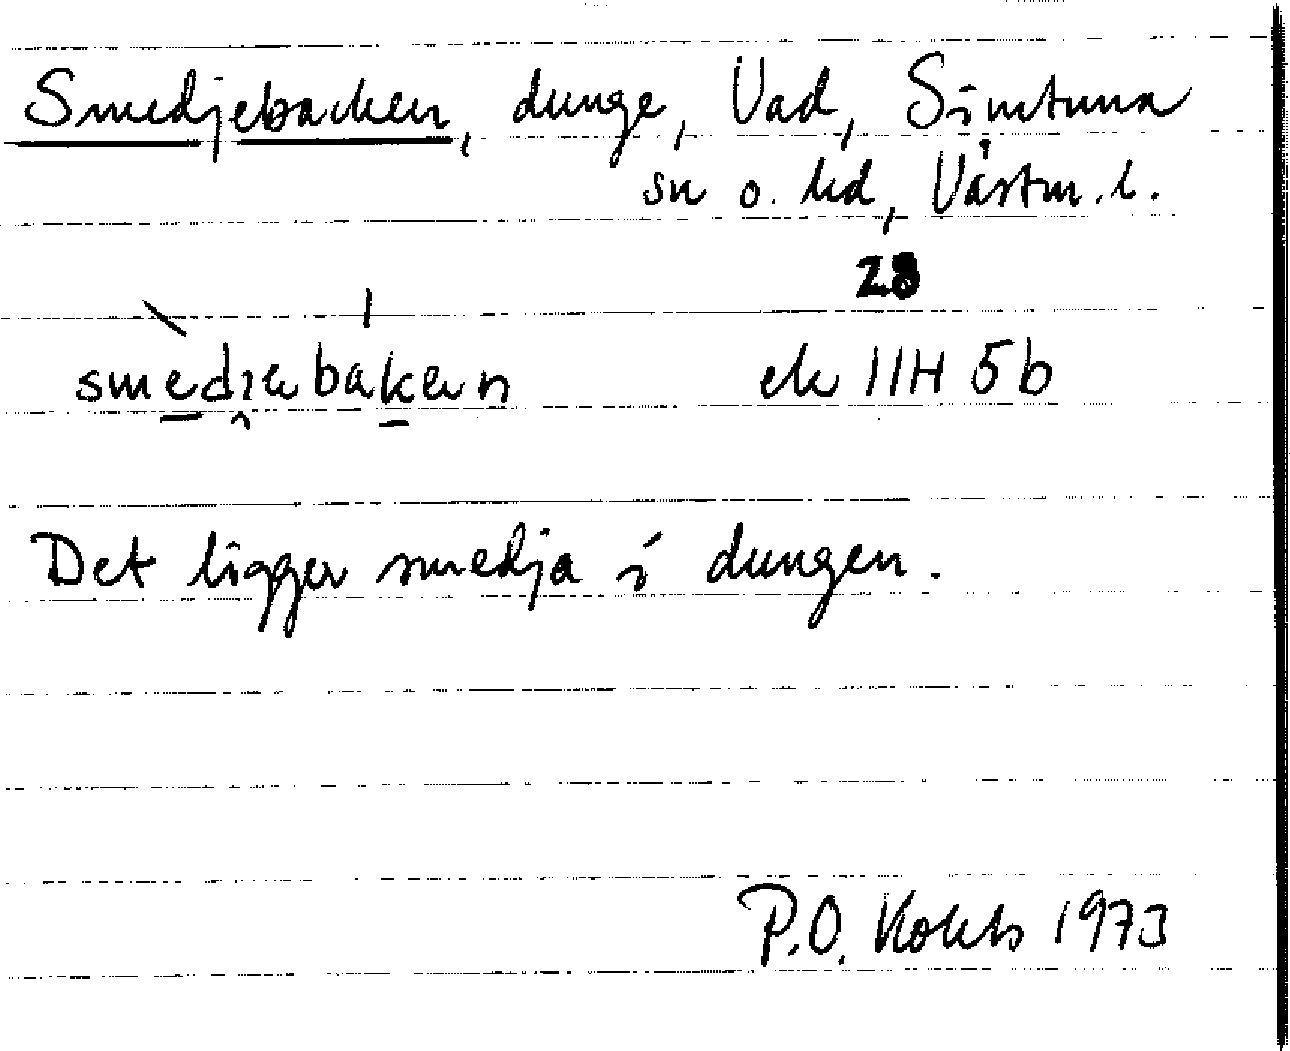 Smedjebacken, dunge, Vad, Simtuna
sn o. hd, Västm. l.
28
smedi̯ebaken ek 11H 5b
Det ligger smedja i dungen.
P.O. 1973